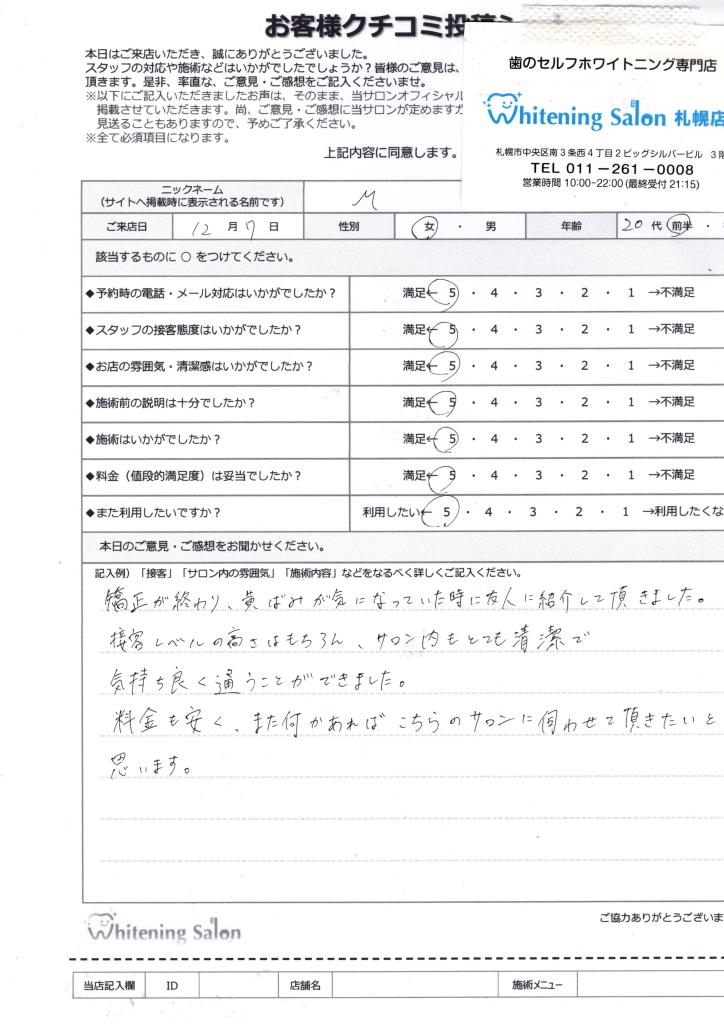 お客様クチコミ投稿シ
本日はご来店いただき、誠にありがとうございました。
スタッフの対応や施術などはいかがでしたでしょうか？皆様のご意見は、
頂きます。是非、率直な、ご意見・ご感想をご記入くださいませ。
※以下にご記入いただきましたお声は、そのまま、当サロンオフィシャル
掲載させていただきます。尚、ご意見・ご感想に当サロンが定めますガ
見送ることもありますので、予めご了承ください。
※全て必須項目になります。
上記内容に同意します。
歯のセルフホワイトニング専門店
Whitening Salon 札幌店
札幌市中央区南3条西4丁目2ビッグシルバービル 3階
TEL 011-261-0008
営業時間 10:00-22:00 (最終受付 21:15)
ニックネーム
（サイトへ掲載時に表示される名前です） M
ご来店日 12 月 7 日 性別 女 ・ 男 年齢 20 代 前半 ・
該当するものに ○ をつけてください。
◆予約時の電話・メール対応はいかがでしたか？ 満足← 5 ・ 4 ・ 3 ・ 2 ・ 1 →不満足
◆スタッフの接客態度はいかがでしたか？ 満足← 5 ・ 4 ・ 3 ・ 2 ・ 1 →不満足
◆お店の雰囲気・清潔感はいかがでしたか？ 満足← 5 ・ 4 ・ 3 ・ 2 ・ 1 →不満足
◆施術前の説明は十分でしたか？ 満足← 5 ・ 4 ・ 3 ・ 2 ・ 1 →不満足
◆施術はいかがでしたか？ 満足← 5 ・ 4 ・ 3 ・ 2 ・ 1 →不満足
◆料金（値段的満足度）は妥当でしたか？ 満足← 5 ・ 4 ・ 3 ・ 2 ・ 1 →不満足
◆また利用したいですか？ 利用したい← 5 ・ 4 ・ 3 ・ 2 ・ 1 →利用したくな
本日のご意見・ご感想をお聞かせください。
記入例）「接客」「サロン内の雰囲気」「施術内容」などをなるべく詳しくご記入ください。
矯正が終わり、黄ばみが気になっていた時に友人に紹介して頂きました。
接客レベルの高さはもちろん、サロン内もとても清潔で
気持ち良く通うことができました。
料金も安く、また何かあればこちらのサロンに伺わせて頂きたいと
思います。
Whitening Salon
ご協力ありがとうございま
当店記入欄 ID 店舗名 施術メニュー